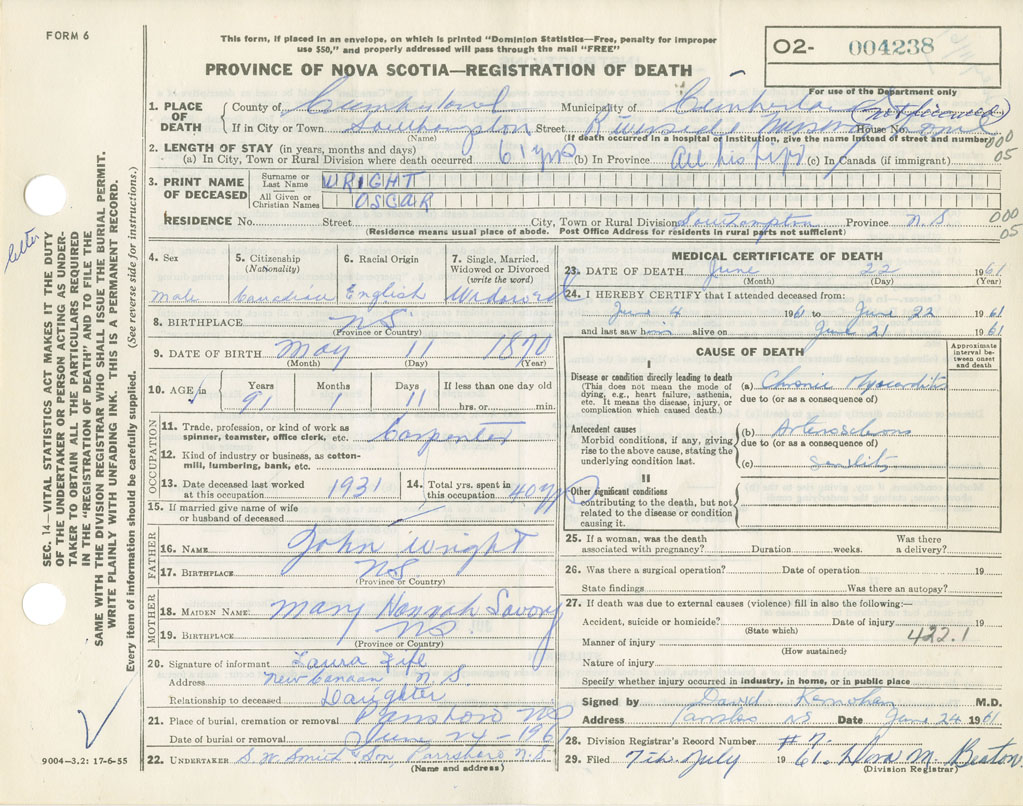 FORM 6
This form, if placed in an envelope, on which is printed "Dominion Statistics—Free, penalty for improper
use $50," and properly addressed will pass through the mail "FREE"
PROVINCE OF NOVA SCOTIA—REGISTRATION OF DEATH
O2- 004238
For use of the Department only
1. PLACE OF DEATH
County of Cumberland Municipality of Cumberland
(not licensed)
If in City or Town Southampton Street Riverside House No.
(Name) (If death occurred in a hospital or institution, give name instead of street and number)
000
05
2. LENGTH OF STAY (in years, months and days)
(a) In City, Town or Rural Division where death occurred 61 yrs (b) In Province All his life (c) In Canada (if immigrant)
3. PRINT NAME OF DECEASED
Surname or Last Name WRIGHT
All Given or Christian Names OSCAR
RESIDENCE No. Street City, Town or Rural Division Southampton Province N.S
(Residence means usual place of abode. Post Office Address for residents in rural parts not sufficient)
000
05
4. Sex
Male
5. Citizenship
(Nationality)
Canadian
6. Racial Origin
English
7. Single, Married,
Widowed or Divorced
(write the word)
Widowed
8. BIRTHPLACE NS
(Province or Country)
9. DATE OF BIRTH May 11 1870
(Month) (Day) (Year)
10. AGE in
Years Months Days If less than one day old
91 1 11 hrs. or min.
OCCUPATION
11. Trade, profession, or kind of work as
spinner, teamster, office clerk, etc. Carpenter
12. Kind of industry or business, as cotton-
mill, lumbering, bank, etc.
13. Date deceased last worked
at this occupation 1931
14. Total yrs. spent in
this occupation 40 yrs
15. If married give name of wife
or husband of deceased
FATHER
16. NAME John Wright
17. BIRTHPLACE NS
(Province or Country)
MOTHER
18. MAIDEN NAME: Mary Hannah Savory
19. BIRTHPLACE NS
(Province or Country)
20. Signature of informant Laura Fife
Address New Canaan N.S.
Relationship to deceased Daughter
21. Place of burial, cremation or removal NS
Date of burial or removal June 24-1961
22. UNDERTAKER S. W. Smith & Son Parrsboro N.S.
(Name and address)
MEDICAL CERTIFICATE OF DEATH
23. DATE OF DEATH June 22 1961
(Month) (Day) (Year)
24. I HEREBY CERTIFY that I attended deceased from:
June 4 1961 to June 22 1961
and last saw him alive on June 21 1961
CAUSE OF DEATH
Approximate
interval be-
tween onset
and death
I
Disease or condition directly leading to death
(This does not mean the mode of
dying, e.g., heart failure, asthenia,
etc. It means the disease, injury, or
complication which caused death.)
(a) Chronic Myocarditis
due to (or as a consequence of)
Antecedent causes
Morbid conditions, if any, giving
rise to the above cause, stating the
underlying condition last.
(b) Arteriosclerosis
due to (or as a consequence of)
(c) Senility
II
Other significant conditions
contributing to the death, but not
related to the disease or condition
causing it.
25. If a woman, was the death Was there
associated with pregnancy? Duration weeks. a delivery?
26. Was there a surgical operation? Date of operation 19
State findings Was there an autopsy?
27. If death was due to external causes (violence) fill in also the following:—
Accident, suicide or homicide? Date of injury 19
(State which) 422.1
Manner of injury
(How sustained)
Nature of injury
Specify whether injury occurred in industry, in home, or in public place
Signed by David Kernohan M.D.
Address NS Date June 24 1961
28. Division Registrar's Record Number #7
29. Filed 7th July 1961. Dora M. Beaton
(Division Registrar)
SEC. 14—VITAL STATISTICS ACT MAKES IT THE DUTY
OF THE UNDERTAKER OR PERSON ACTING AS UNDER-
TAKER TO OBTAIN ALL THE PARTICULARS REQUIRED
IN THE "REGISTRATION OF DEATH" AND TO FILE THE
SAME WITH THE DIVISION REGISTRAR WHO SHALL ISSUE THE BURIAL PERMIT.
WRITE PLAINLY WITH UNFADING INK. THIS IS A PERMANENT RECORD.
Every item of information should be carefully supplied. (See reverse side for instructions.)
letter
9004-3.2: 17-6-55